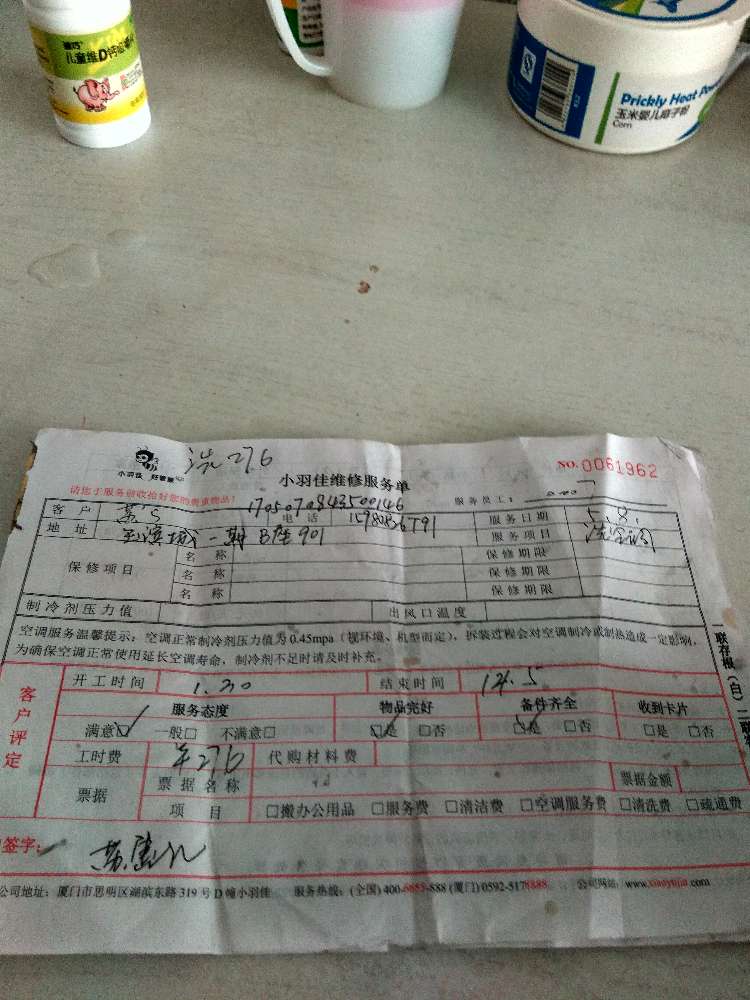 儿童维D钙咀嚼片
Prickly Heat Po
玉米婴儿痱子粉
Corn
洗276
小羽佳
小羽佳维修服务单
NO.0061962
请您于服务前收拾好您的贵重物品!
1705070843500146
服务员工:
客户 电话 服务日期 5.8.
地址 一期B座901 服务项目
保修项目 名称 保修期限
名称 保修期限
名称 保修期限
制冷剂压力值 出风口温度
空调服务温馨提示:空调正常制冷剂压力值为0.45mpa(视环境、机型而定),拆装过程会对空调制冷或制热造成一定影响,
为确保空调正常使用延长空调寿命,制冷剂不足时请及时补充。
客户评定
开工时间 1.30 结束时间
服务态度 物品完好 备件齐全 收到卡片
满意□ 一般□ 不满意□ □是 □否 □是 □否 □是 □否
工时费 ¥276 代购材料费
票据 票据名称 票据金额
项目 □搬办公用品 □服务费 □清洁费 □空调服务费 □清洗费 □疏通费
签字:
公司地址:厦门市思明区湖滨东路319号D幢小羽佳 服务热线:(全国)400-6655-888 (厦门)0592-5178888 公司网站:www.xiaoyujia.com
一联存根(白)